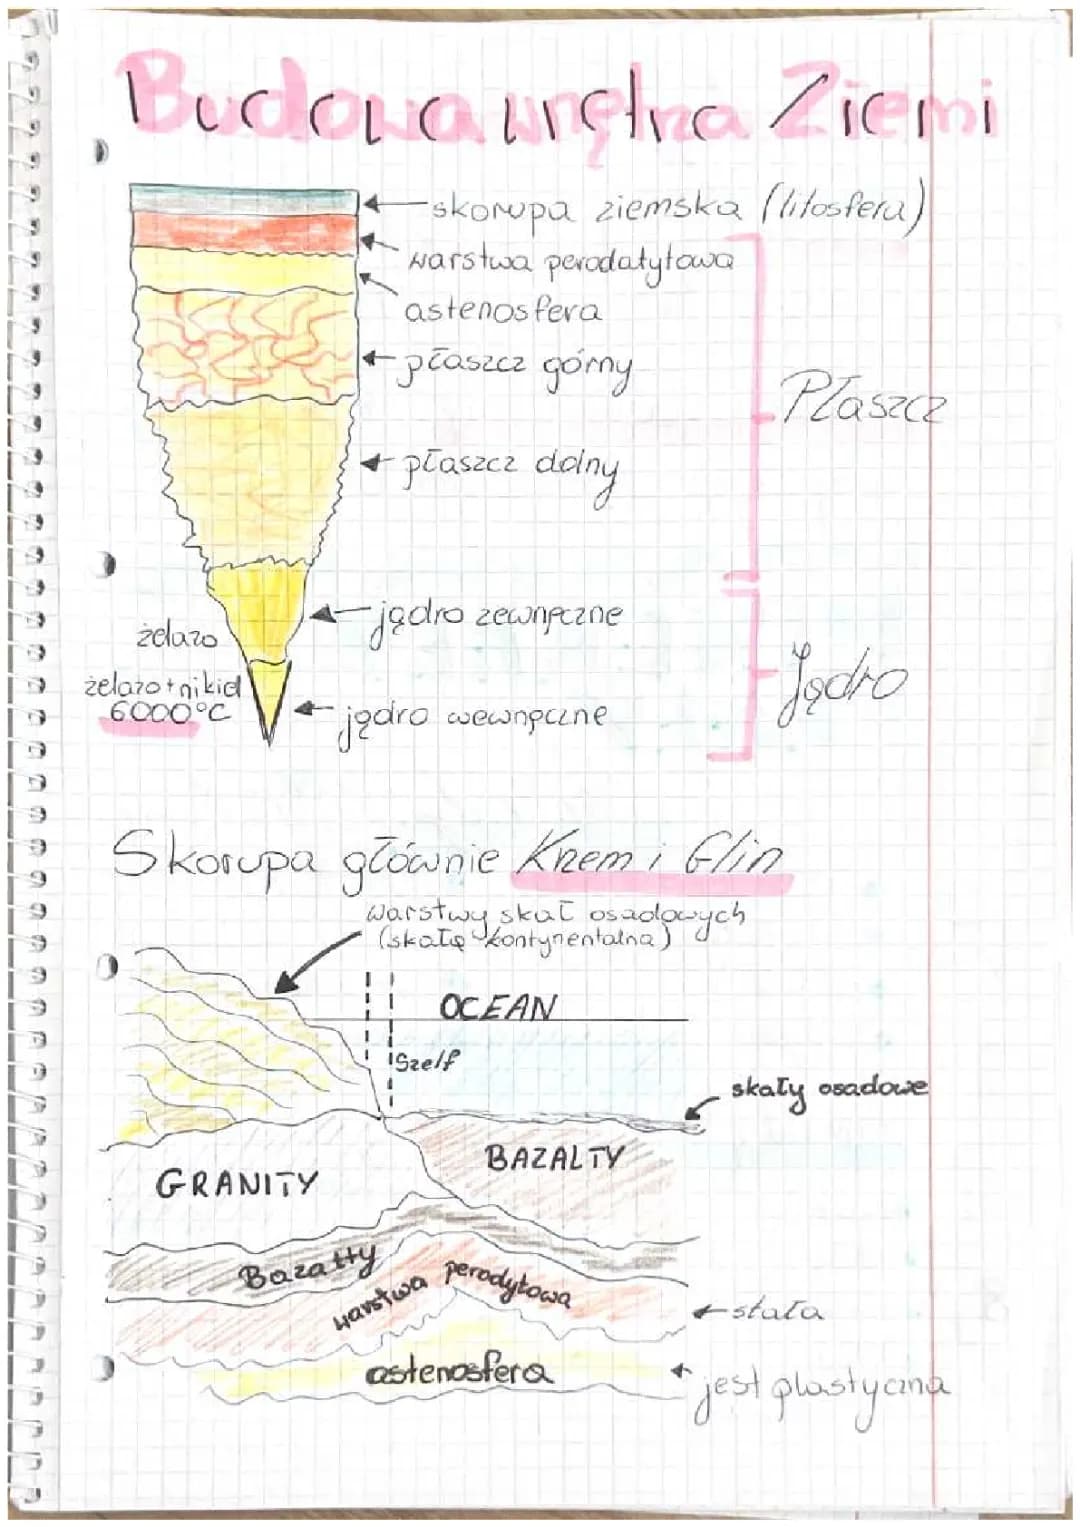 Budowa wnętrza Ziemi
skorupa ziemska (litosfera)
warstwa perodatytowa
astenosfera
płaszcz górny
Płaszcz
płaszcz dolny
jądro zewnęczne
żelazo
Jądro
żelazo + nikiel
6000°C
jądro wewnęczne
Skorupa głównie Krzem i Glin
Warstwy skał osadowych
(skałę kontynentalna)
OCEAN
Szelf
skały osadowe
BAZALTY
GRANITY
Bazatty
warstwa perodytowa
stała
astenosfera
jest plastyczna